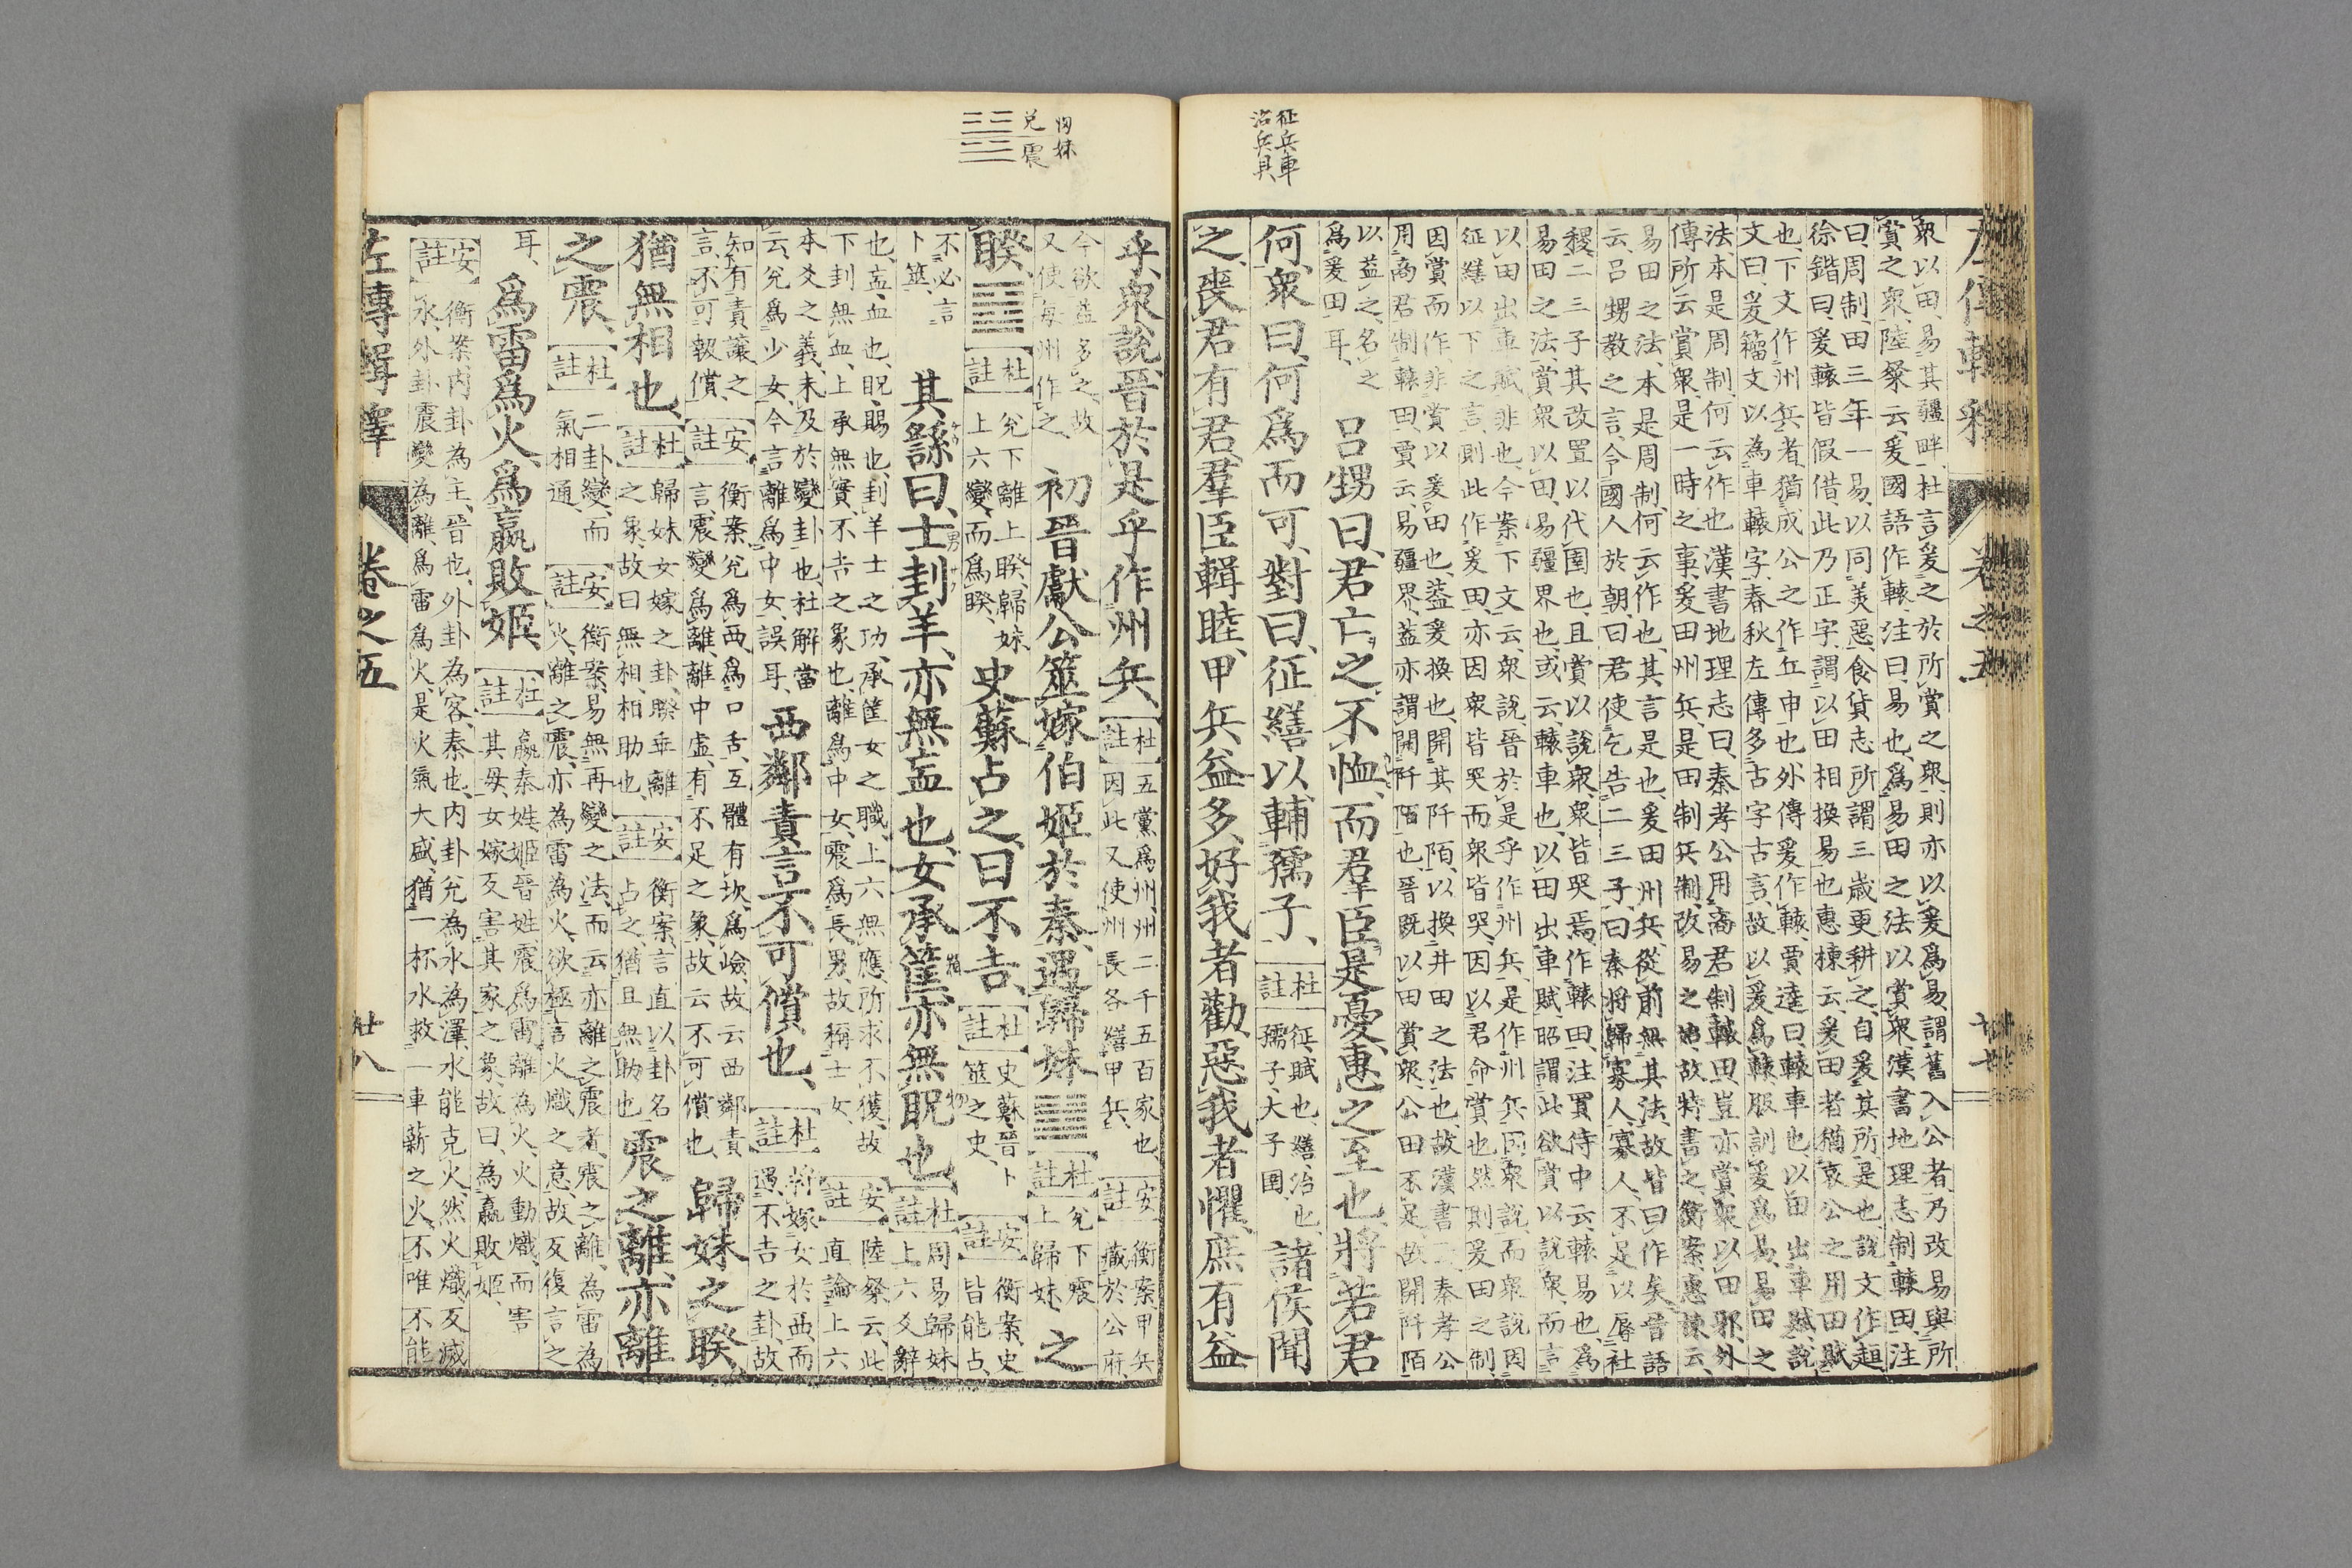 征兵車
治兵具
衆以田易其疆畔杜言爰之於所賞之衆則亦以爰爲易謂舊入公者乃改易與所
賞之衆陸粲云爰國語作轅注曰易也爲易田之法以賞衆漢書地理志制轅田注
曰周制田三年一易以同美惡食貨志所謂三歲更耕之自爰其所是也說文作䞢
徐鍇曰爰轅皆假借此乃正字謂以田相換易也惠棟云爰田者猶哀公之用田賦
也下文作州兵者猶成公之作丘甲也外傳爰作轅賈逵曰轅車也以田出車賦說
文曰爰籀文以為車轅字春秋左傳多古字古言故以爰爲轅服訓爰爲易易田之
法本是周制何云作也漢書地理志曰秦孝公用商君制轅田豈亦賞衆以田邪外
傳所云賞衆是一時之事爰田州兵是田制兵制改易之始故特書之衡案惠棟云
易田之法本是周制何云作也其言是也爰田州兵從前無其法故皆曰作矣晉語
云呂甥教之言令國人於朝曰君使乞告二三子曰秦將歸寡人寡人不足以辱社
稷二三子其改置以代圉也且賞以說衆衆皆哭焉作轅田注賈侍中云轅易也爲
易田之法賞衆以田易疆界也或云轅車也以田出車賦昭謂此欲賞以說衆而言
以田出車賦非也今案下文云衆說晉於是乎作州兵是作州兵因衆說而衆說因
征繕以下之言則此作爰田亦因衆皆哭而衆皆哭因以君命賞也然則爰田之制
因賞而作非賞以爰田也蓋爰換也開其阡陌以換井田之法也故漢書云秦孝公
用商君制轅田賈云易疆界蓋亦謂開阡陌也晉既以田賞衆公田不足故開阡陌
以益之名之
爲爰田耳
呂甥曰君亡之不恤而羣臣是憂惠之至也將若君
何衆曰何爲而可對曰征繕以輔孺子
杜註
征賦也繕治也
孺子大子圉
諸侯聞
之喪君有君羣臣輯睦甲兵益多好我者勸惡我者懼庶有益
左傳輯釋
卷之五
歸妹
兌震
乎衆說晉於是乎作州兵
杜註
五黨爲州州二千五百家也
因此又使州長各繕甲兵
安註
衡案甲兵
藏於公府
今欲益多之故
又使每州作之
初晉獻公筮嫁伯姬於秦遇歸妹
杜註
兌下震
上歸妹
之
睽
杜註
兌下離上睽歸妹
上六變而爲睽
史蘇占之曰不吉
杜註
史蘇晉卜
筮之史
安註
衡案史
皆能占
不必言
卜筮
其繇曰士刲羊亦無衁也女承筐亦無貺也
杜註
周易歸妹
上六爻辭
也衁血也貺賜也刲羊士之功承筐女之職上六無應所求不獲故
下刲無血上承無實不吉之象也離爲中女震爲長男故稱士女
安註
陸粲云此
直論上六
本爻之義未及於變卦也杜解當
云兌爲少女今言離爲中女誤耳
西鄰責言不可償也
杜註
將嫁女於西而
遇不吉之卦故
知有責讓之
言不可報償
安註
衡案兌爲西爲口舌互體有坎爲險故云西鄰責
言震變爲離離中虛有不足之象故云不可償也
歸妹之睽
猶無相也
杜註
歸妹女嫁之卦睽乖離
之象故曰無相相助也
安註
衡案言直以卦名
占之猶且無助也
震之離亦離
之震
杜註
二卦變而
氣相通
安註
衡案易無再變之法而云亦離之震者震之離為雷為
火離之震亦為雷為火欲極言火熾之意故反復言之
耳
爲雷爲火爲嬴敗姬
杜註
嬴秦姓姬晉姓震爲雷離為火火動熾而害
其母女嫁反害其家之象故曰為嬴敗姬
安註
衡案內卦為主晉也外卦為客秦也內卦兌為水為澤水能克火然火熾反滅
水外卦震變為離為雷為火是火氣大盛猶一杯水救一車薪之火不唯不能
左傳輯釋
卷之五
廿八